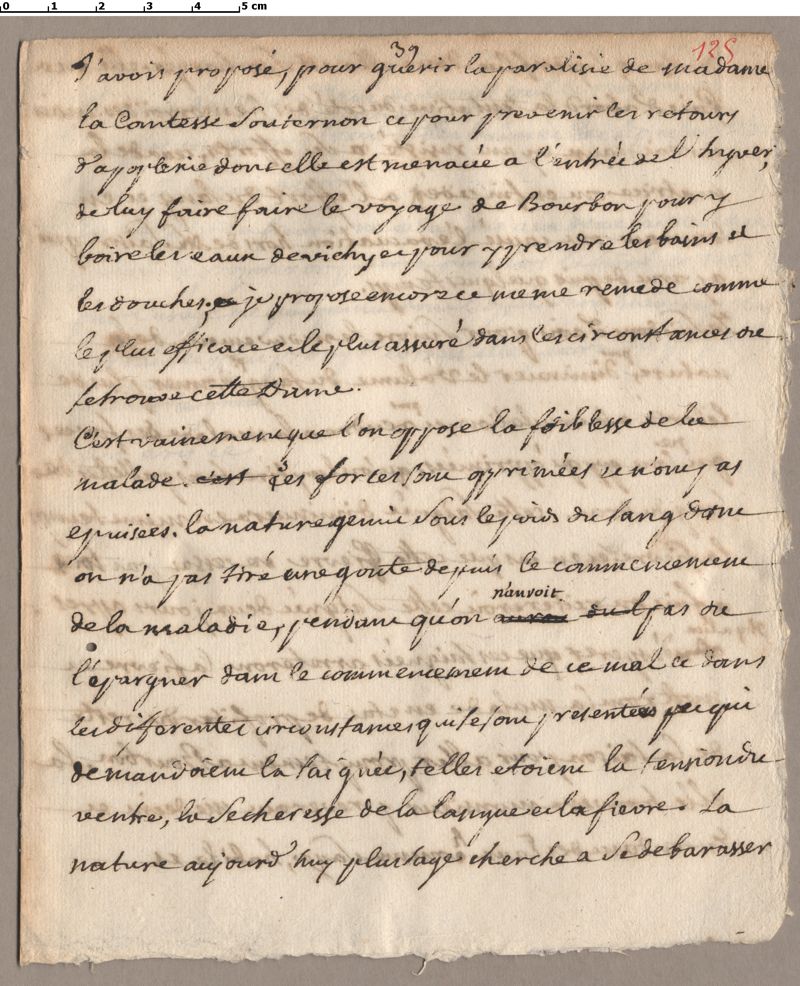 0 1 2 3 4 5 cm
39
125
J'avois proposé, pour guerir la paralisie de madame
la Comtesse Souternon et pour prevenir les retours
d'apoplexie dont elle est menacée a l'entrée de l'hyver,
de luy faire faire le voyage de Bourbon pour y
boire les eaux de vichy et pour y prendre les bains et
les douches. et je propose encore ce meme remede comme
le plus efficace et le plus assuré dans les circonstances ou
se trouve cette Dame.
C'est vainement que l'on oppose la foiblesse de la
malade. c'est ses forces sont opprimées et n'ont pas
epuisées. la nature gemit sous le poids du sang dont
on n'a pas tiré une goute depuis le commencement
n'auroit
de la maladie, pendant qu'on pas du
l'épargner dans le commencement de ce mal et dans
les differentes circonstances qui se sont presentées qui
demandoient la saignée, telles etoient la tension du
ventre, la secheresse de la langue et la fievre. La
nature aujourd'huy plus sage cherche a se debarasser